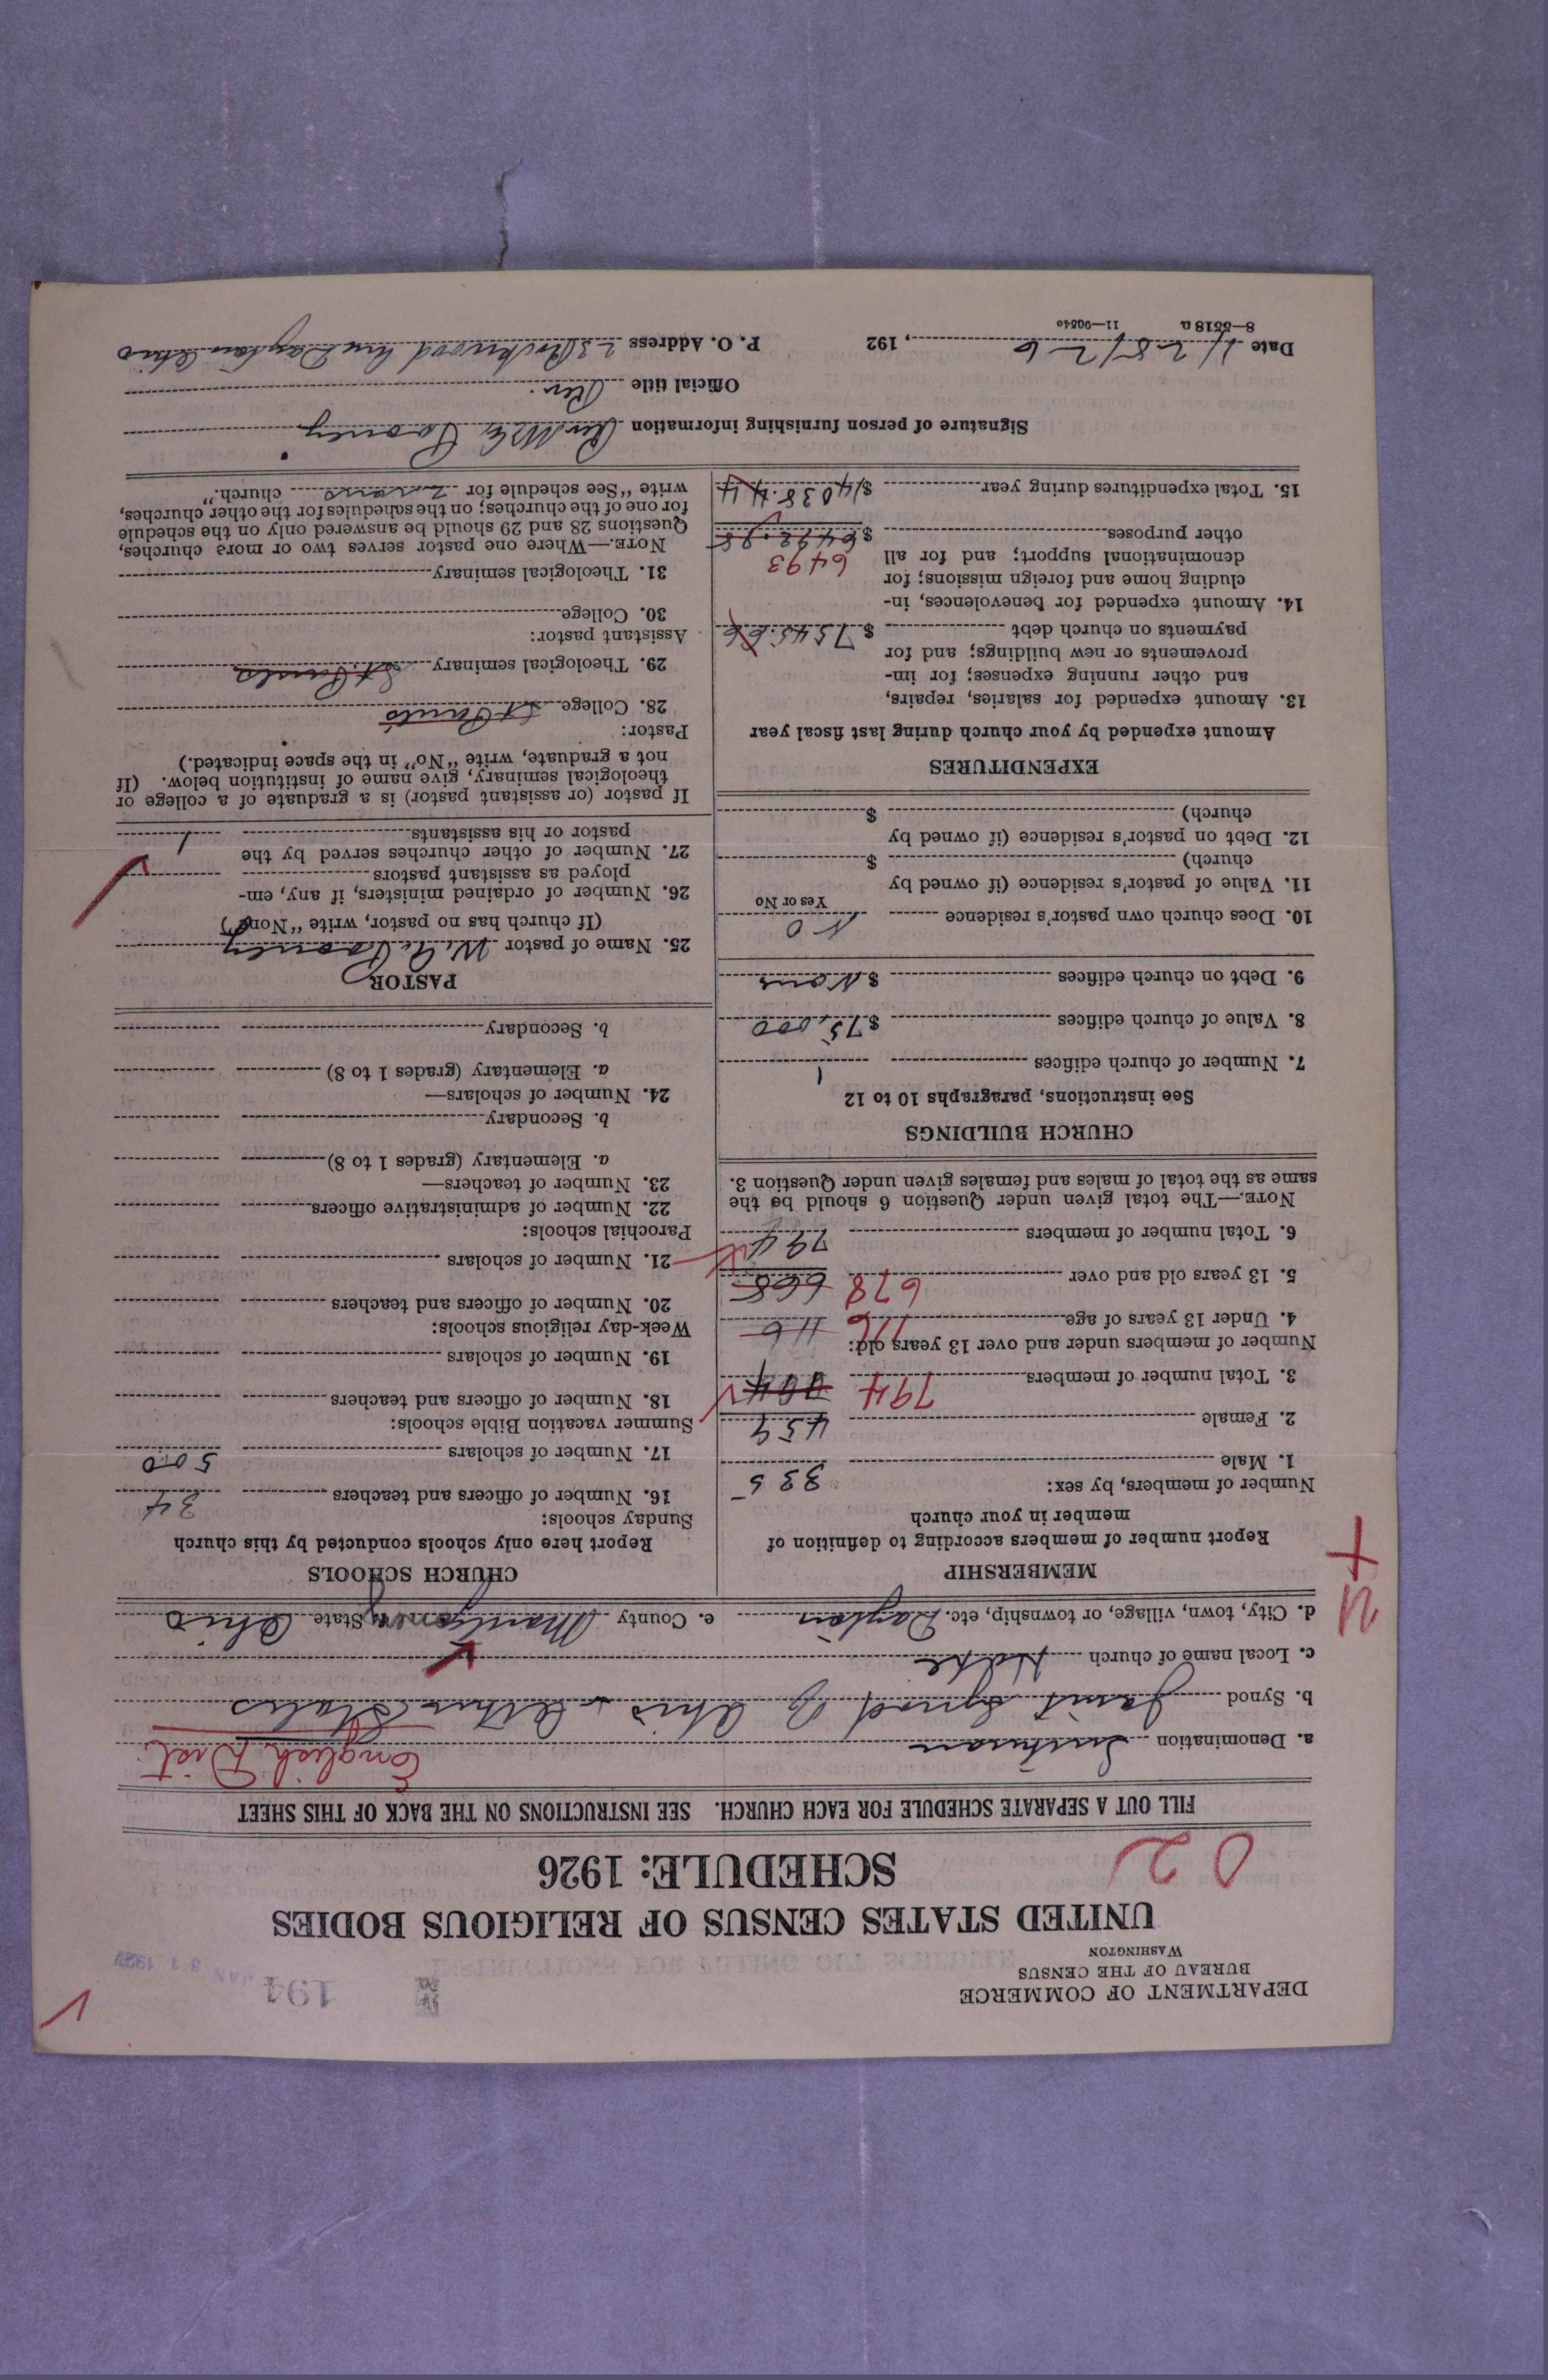 DEPARTMENT OF COMMERCE
BUREAU OF THE CENSUS
WASHINGTON
194
JAN 31 1927
UNITED STATES CENSUS OF RELIGIOUS BODIES
SCHEDULE: 1926
02
FILL OUT A SEPARATE SCHEDULE FOR EACH CHURCH. SEE INSTRUCTIONS ON THE BACK OF THIS SHEET
English Dist.
a. Denomination Lutheran
b. Synod Joint Synod of Ohio & Other States
c. Local name of church Hope
d. City, town, village, or township, etc. Dayton e. County Montgomery State Ohio
MEMBERSHIP
Report number of members according to definition of
member in your church
Number of members, by sex:
1. Male 335
2. Female 459
3. Total number of members 794
Number of members under and over 13 years old:
4. Under 13 years of age 116 116
5. 13 years old and over 678 668
6. Total number of members 794
NOTE.—The total given under Question 6 should be the
same as the total of males and females given under Question 3.
CHURCH BUILDINGS
See instructions, paragraphs 10 to 12
7. Number of church edifices 1
8. Value of church edifices $75,000
9. Debt on church edifices $None
10. Does church own pastor's residence No
Yes or No
11. Value of pastor's residence (if owned by
church) $
12. Debt on pastor's residence (if owned by
church) $
EXPENDITURES
Amount expended by your church during last fiscal year
13. Amount expended for salaries, repairs,
and other running expenses; for im-
provements or new buildings; and for
payments on church debt $7545.66
14. Amount expended for benevolences, in-
cluding home and foreign missions; for
denominational support; and for all 6493
other purposes $
15. Total expenditures during year $14038.44
CHURCH SCHOOLS
Report here only schools conducted by this church
Sunday schools:
16. Number of officers and teachers 34
17. Number of scholars 500
Summer vacation Bible schools:
18. Number of officers and teachers
19. Number of scholars
Week-day religious schools:
20. Number of officers and teachers
21. Number of scholars
Parochial schools:
22. Number of administrative officers
23. Number of teachers—
a. Elementary (grades 1 to 8)
b. Secondary
24. Number of scholars—
a. Elementary (grades 1 to 8)
b. Secondary
PASTOR
25. Name of pastor
(If church has no pastor, write "None")
26. Number of ordained ministers, if any, em-
ployed as assistant pastors
27. Number of other churches served by the
pastor or his assistants 1
If pastor (or assistant pastor) is a graduate of a college or
theological seminary, give name of institution below. (If
not a graduate, write "No" in the space indicated.)
Pastor:
28. College St Pauls
29. Theological seminary St. Pauls
Assistant pastor:
30. College
31. Theological seminary
NOTE.—Where one pastor serves two or more churches,
Questions 28 and 29 should be answered only on the schedule
for one of the churches; on the schedules for the other churches,
write "See schedule for church."
Signature of person furnishing information Rev
Official title Rev.
Date 11/28/26, 192 P. O. Address Ave Dayton Ohio
8—5518 a 11—90540